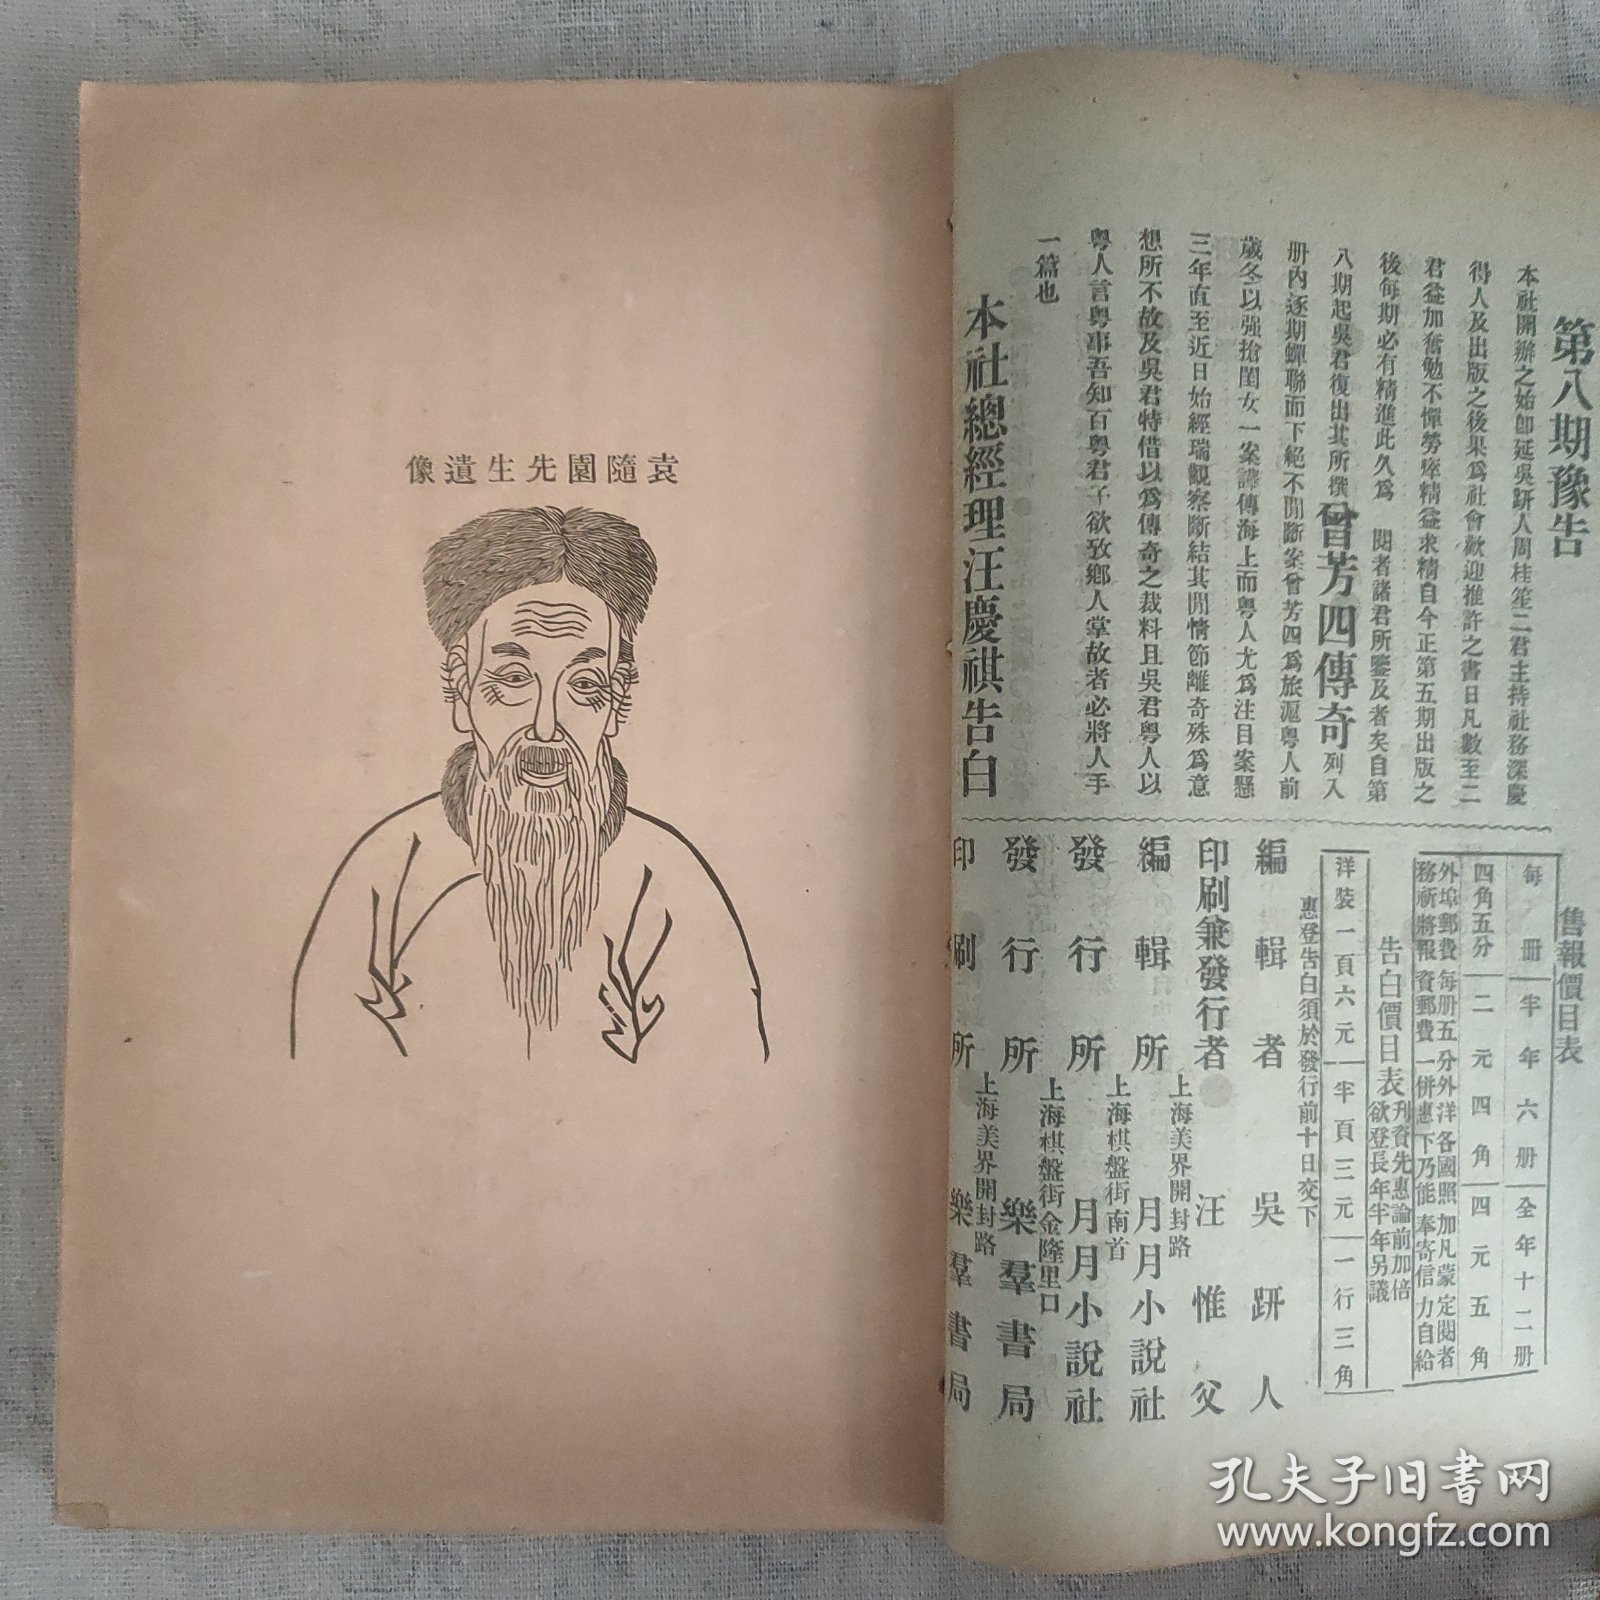 第八期豫告
本社開辦之始卽延吳趼人周桂笙二君主持社務深慶
得人及出版之後果爲社會歡迎推許之書目凡數至二
君益加奮勉不憚勞瘁精益求精自今正第五期出版之
後每期必有精進此久爲 閱者諸君所鑒及者矣自第
八期起吳君復出其所撰曾芳四傳奇列入
册內逐期蟬聯而下絕不間斷案曾芳四爲旅滬粤人前
歲冬以强搶閨女一案譁傳海上而粤人尤爲注目案懸
三年直至近日始經瑞觀察斷結其間情節離奇殊爲意
想所不故及吳君特借以爲傳奇之裁料且吳君粤人以
粤人言粤事吾知百粤君子欲攷鄉人掌故者必將人手
一篇也
本社總經理汪慶祺告白
售報價目表
每册 半年六册 全年十二册
四角五分 二元四角 四元五角
外埠郵費每册五分外洋各國照加凡蒙定閱者
務祈將報資郵費一併惠下乃能奉寄信力自給
告白價目表
刋資先惠論前加倍
欲登長年半年另議
洋裝一頁六元 半頁三元 一行三角
惠登告白須於發行前十日交下
編輯者 吳趼人
印刷兼發行者 汪惟父
上海美界開封路
編輯所 月月小說社
上海棋盤街南首
發行所 月月小說社
上海棋盤街金隆里口
發行所 樂羣書局
上海美界開封路
印刷所 樂羣書局
袁隨園先生遺像
孔夫子旧书网
www.kongfz.com